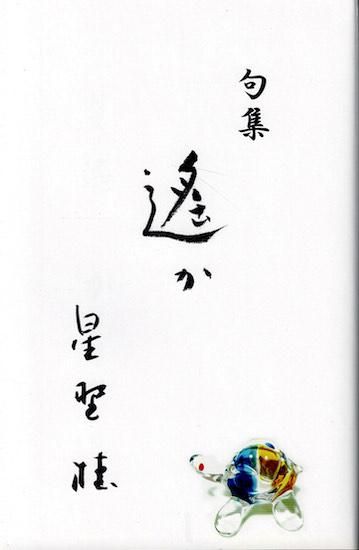 句集
遙か
星野椿